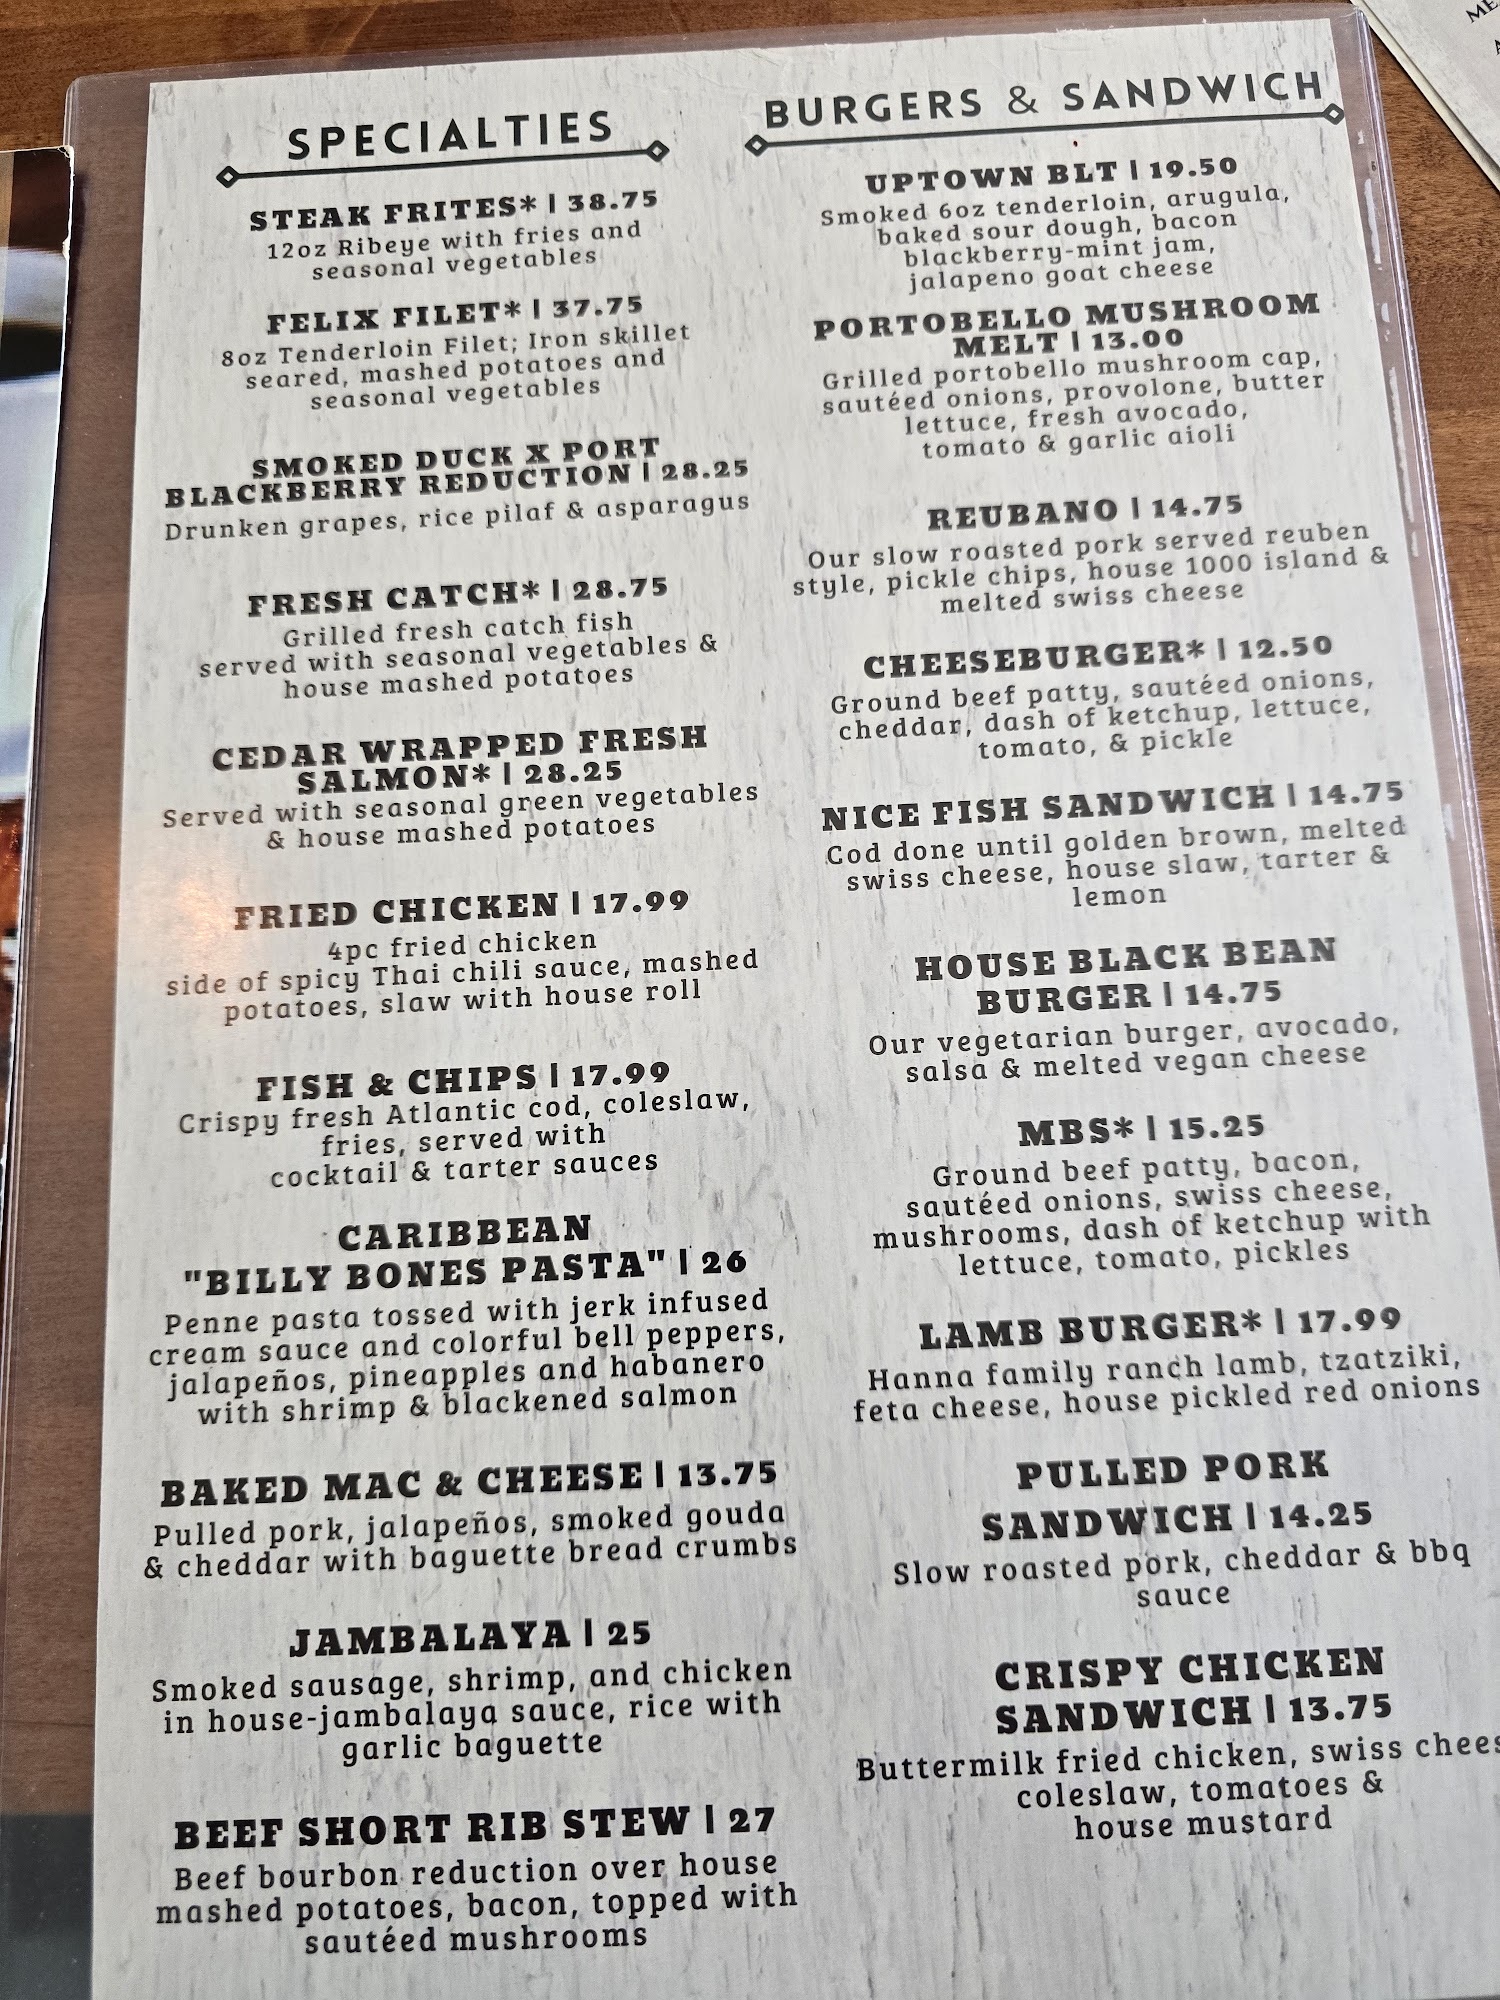 SPECIALTIES
STEAK FRITES* | 38.75
12oz Ribeye with fries and
seasonal vegetables
FELIX FILET* | 37.75
8oz Tenderloin Filet; Iron skillet
seared, mashed potatoes and
seasonal vegetables
SMOKED DUCK X PORT
BLACKBERRY REDUCTION | 28.25
Drunken grapes, rice pilaf & asparagus
FRESH CATCH* | 28.75
Grilled fresh catch fish
served with seasonal vegetables &
house mashed potatoes
CEDAR WRAPPED FRESH
SALMON* | 28.25
Served with seasonal green vegetables
& house mashed potatoes
FRIED CHICKEN | 17.99
4pc fried chicken
side of spicy Thai chili sauce, mashed
potatoes, slaw with house roll
FISH & CHIPS | 17.99
Crispy fresh Atlantic cod, coleslaw,
fries, served with
cocktail & tarter sauces
CARIBBEAN
"BILLY BONES PASTA" | 26
Penne pasta tossed with jerk infused
cream sauce and colorful bell peppers,
jalapeños, pineapples and habanero
with shrimp & blackened salmon
BAKED MAC & CHEESE | 13.75
Pulled pork, jalapeños, smoked gouda
& cheddar with baguette bread crumbs
JAMBALAYA | 25
Smoked sausage, shrimp, and chicken
in house-jambalaya sauce, rice with
garlic baguette
BEEF SHORT RIB STEW | 27
Beef bourbon reduction over house
mashed potatoes, bacon, topped with
sautéed mushrooms
BURGERS & SANDWICH
UPTOWN BLT | 19.50
Smoked 6oz tenderloin, arugula,
baked sour dough, bacon
blackberry-mint jam,
jalapeno goat cheese
PORTOBELLO MUSHROOM
MELT | 13.00
Grilled portobello mushroom cap,
sautéed onions, provolone, butter
lettuce, fresh avocado,
tomato & garlic aioli
REUBANO | 14.75
Our slow roasted pork served reuben
style, pickle chips, house 1000 island &
melted swiss cheese
CHEESEBURGER* | 12.50
Ground beef patty, sautéed onions,
cheddar, dash of ketchup, lettuce,
tomato, & pickle
NICE FISH SANDWICH | 14.75
Cod done until golden brown, melted
swiss cheese, house slaw, tarter &
lemon
HOUSE BLACK BEAN
BURGER | 14.75
Our vegetarian burger, avocado,
salsa & melted vegan cheese
MBS* | 15.25
Ground beef patty, bacon,
sautéed onions, swiss cheese,
mushrooms, dash of ketchup with
lettuce, tomato, pickles
LAMB BURGER* | 17.99
Hanna family ranch lamb, tzatziki,
feta cheese, house pickled red onions
PULLED PORK
SANDWICH | 14.25
Slow roasted pork, cheddar & bbq
sauce
CRISPY CHICKEN
SANDWICH | 13.75
Buttermilk fried chicken, swiss chees
coleslaw, tomatoes &
house mustard